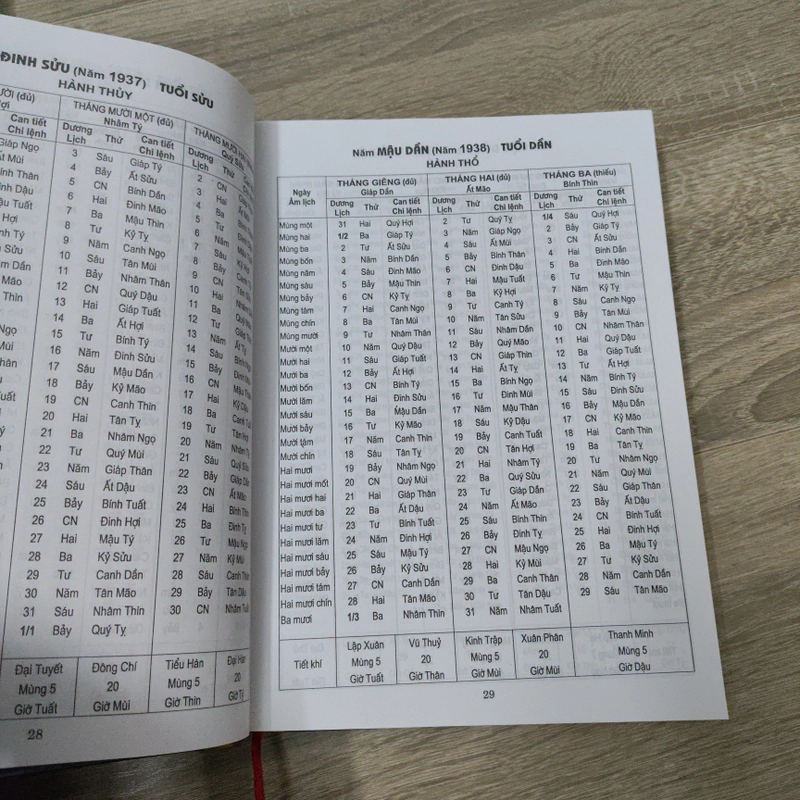 ĐINH SỬU (Năm 1937) TUỔI SỬU
HÀNH THỦY
THÁNG MƯỜI MỘT (đủ)
Nhâm Tý
Can tiết Dương Thứ Can tiết
Chi lệnh Lịch Chi lệnh
Giáp Ngọ 3 Sáu Giáp Tý 2 CN
Ất Mùi 4 Bảy Ất Sửu 3 Hai
Bính Thân 5 CN Bính Dần 4 Ba
Đinh Dậu 6 Hai Đinh Mão 5 Tư
7 Ba Mậu Thìn 6 Năm
8 Tư Kỷ Tỵ 7 Sáu
9 Năm Canh Ngọ 8 Bảy
10 Sáu Tân Mùi 9 CN
11 Bảy Nhâm Thân 10 Hai
12 CN Quý Dậu 11 Ba
13 Hai Giáp Tuất 12 Tư
14 Ba Ất Hợi 13 Năm
15 Tư Bính Tý 14 Sáu
16 Năm Đinh Sửu 15 Bảy
17 Sáu Mậu Dần 16 CN
18 Bảy Kỷ Mão 17 Hai
19 CN Canh Thìn 18 Ba
20 Hai Tân Tỵ 19 Tư
21 Ba Nhâm Ngọ 20 Năm
22 Tư Quý Mùi 21 Sáu
23 Năm Giáp Thân 22 Bảy
24 Sáu Ất Dậu 23 CN
25 Bảy Bính Tuất 24 Hai
26 CN Đinh Hợi 25 Ba
27 Hai Mậu Tý 26 Tư
28 Ba Kỷ Sửu 27 Năm
29 Tư Canh Dần 28 Sáu
30 Năm Tân Mão 29 Bảy
31 Sáu Nhâm Thìn 30 CN
1/1 Bảy Quý Tỵ
Đại Tuyết Đông Chí Tiểu Hàn
Mùng 5 20 Mùng 5 20
Giờ Tuất Giờ Mùi Giờ Thìn
28
Năm MẬU DẦN (Năm 1938) TUỔI DẦN
HÀNH THỔ
Ngày THÁNG GIÊNG (đủ) THÁNG HAI (đủ) THÁNG BA (thiếu)
Âm lịch Giáp Dần Ất Mão Bính Thìn
Dương Thứ Can tiết Dương Thứ Can tiết Dương Thứ Can tiết
Lịch Chi lệnh Lịch Chi lệnh Lịch Chi lệnh
Mùng một 31 Hai Quý Hợi 2 Tư Quý Tỵ 1/4 Sáu Quý Hợi
Mùng hai 1/2 Ba Giáp Tý 3 Năm Giáp Ngọ 2 Bảy Giáp Tý
Mùng ba 2 Tư Ất Sửu 4 Sáu Ất Mùi 3 CN Ất Sửu
Mùng bốn 3 Năm Bính Dần 5 Bảy Bính Thân 4 Hai Bính Dần
Mùng năm 4 Sáu Đinh Mão 6 CN Đinh Dậu 5 Ba Đinh Mão
Mùng sáu 5 Bảy Mậu Thìn 7 Hai Mậu Tuất 6 Tư Mậu Thìn
Mùng bảy 6 CN Kỷ Tỵ 8 Ba Kỷ Hợi 7 Năm Kỷ Tỵ
Mùng tám 7 Hai Canh Ngọ 9 Tư Canh Tý 8 Sáu Canh Ngọ
Mùng chín 8 Ba Tân Mùi 10 Năm Tân Sửu 9 Bảy Tân Mùi
Mùng mười 9 Tư Nhâm Thân 11 Sáu Nhâm Dần 10 CN Nhâm Thân
Mười một 10 Năm Quý Dậu 12 Bảy Quý Mão 11 Hai Quý Dậu
Mười hai 11 Sáu Giáp Tuất 13 CN Giáp Thìn 12 Ba Giáp Tuất
Mười ba 12 Bảy Ất Hợi 14 Hai Ất Tỵ 13 Tư Ất Hợi
Mười bốn 13 CN Bính Tý 15 Ba Bính Ngọ 14 Năm Bính Tý
Mười lăm 14 Hai Đinh Sửu 16 Tư Đinh Mùi 15 Sáu Đinh Sửu
Mười sáu 15 Ba Mậu Dần 17 Năm Mậu Thân 16 Bảy Mậu Dần
Mười bảy 16 Tư Kỷ Mão 18 Sáu Kỷ Dậu 17 CN Kỷ Mão
Mười tám 17 Năm Canh Thìn 19 Bảy Canh Tuất 18 Hai Canh Thìn
Mười chín 18 Sáu Tân Tỵ 20 CN Tân Hợi 19 Ba Tân Tỵ
Hai mươi 19 Bảy Nhâm Ngọ 21 Hai Nhâm Tý 20 Tư Nhâm Ngọ
Hai mươi mốt 20 CN Quý Mùi 22 Ba Quý Sửu 21 Năm Quý Mùi
Hai mươi hai 21 Hai Giáp Thân 23 Tư Giáp Dần 22 Sáu Giáp Thân
Hai mươi ba 22 Ba Ất Dậu 24 Năm Ất Mão 23 Bảy Ất Dậu
Hai mươi tư 23 Tư Bính Tuất 25 Sáu Bính Thìn 24 CN Bính Tuất
Hai mươi lăm 24 Năm Đinh Hợi 26 Bảy Đinh Tỵ 25 Hai Đinh Hợi
Hai mươi sáu 25 Sáu Mậu Tý 27 CN Mậu Ngọ 26 Ba Mậu Tý
Hai mươi bảy 26 Bảy Kỷ Sửu 28 Hai Kỷ Mùi 27 Tư Kỷ Sửu
Hai mươi tám 27 CN Canh Dần 29 Ba Canh Thân 28 Năm Canh Dần
Hai mươi chín 28 Hai Tân Mão 30 Tư Tân Dậu 29 Sáu Tân Mão
Ba mươi 1/3 Ba Nhâm Thìn 31 Năm Nhâm Tuất
Lập Xuân Vũ Thuỷ Kinh Trập Xuân Phân Thanh Minh
Tiết khí Mùng 5 20 Mùng 5 20 Mùng 5
Giờ Tuất Giờ Thân Giờ Mùi Giờ Mùi Giờ Dậu
29